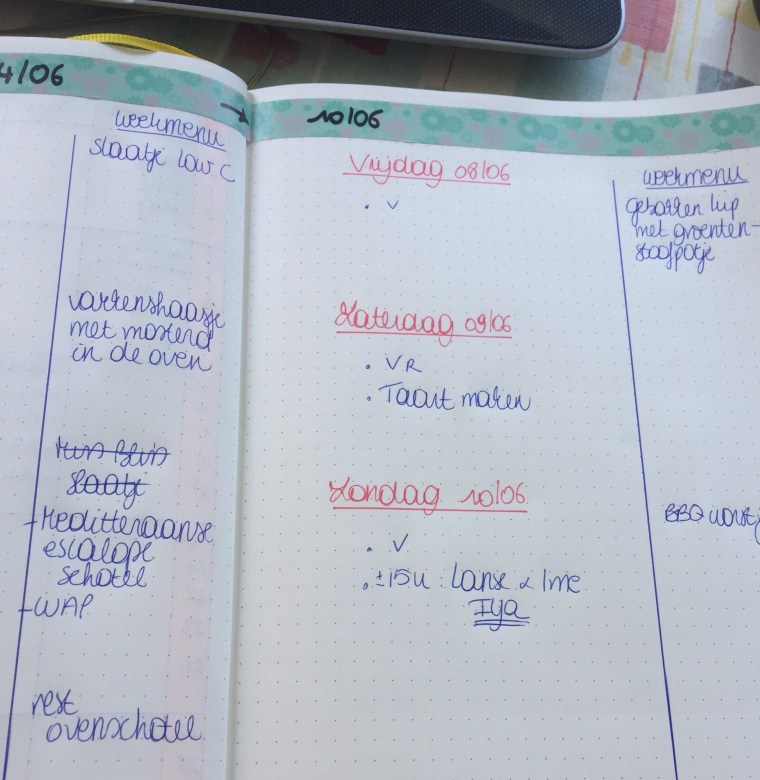 4/06
weekmenu
slaatje low c
varkenshaasje
met mosterd
in de oven
slaatje
- Mediterraanse
escalope
schotel
- WAP
rest
ovenschotel
→ 10/06
Vrijdag 08/06
• V
Zaterdag 09/06
• VR
• Taart maken
Zondag 10/06
• V
• ±15u: Lanse & Ime
Ilja
weekmenu
gebakken kip
met groenten-
stoofpotje
BBQ worstj